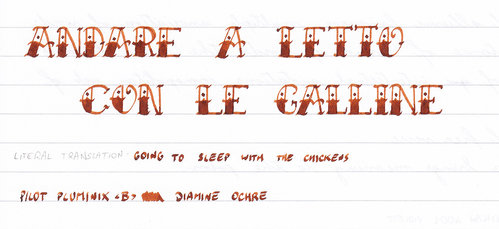 ANDARE A LETTO
CON LE GALLINE
LITERAL TRANSLATION GOING TO SLEEP WITH THE CHICKENS
PILOT PLUMINIX <B> DIAMINE OCHRE